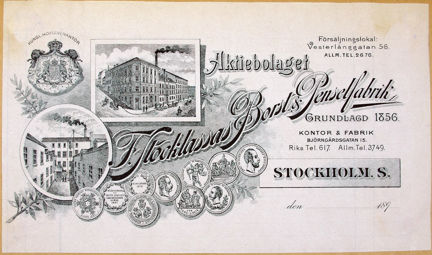 KUNGL. HOFLEVERANTÖR
Försäljningslokal:
Vesterlånggatan 56.
ALLM. TEL. 2676.
Aktiebolaget
F. Stocklassas Borst & Penselfabrik
GRUNDLAGD 1856.
KONTOR & FABRIK
BJÖRNGÅRDSGATAN 15.
Riks Tel. 617. Allm. Tel. 3749.
STOCKHOLM. S.
den 189